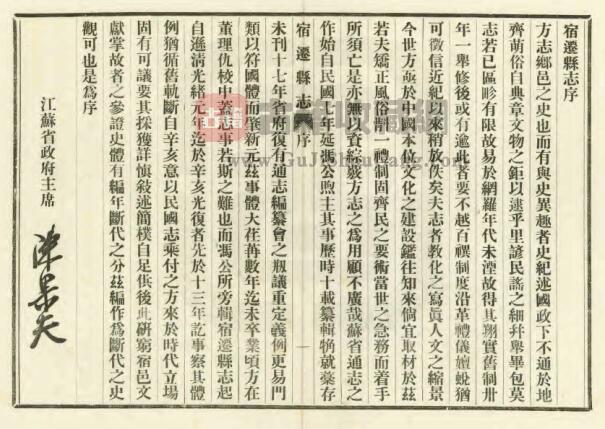 宿遷縣志序
方志鄉邑之史也而有與史異趣者史紀述國政下不通於地
齊萌俗自典章文物之鉅以逮乎里諺民謠之細幷舉畢包莫
志若已區畛有限故易於網羅年代未湮故得其翔實舊制卅
年一舉修後或有逾此者要不越百禩制度沿革禮儀嬗蛻猶
可徵信近紀以來稍放佚矣夫志者教化之寫眞人文之縮景
今世方亟於中國本位文化之建設鑑往知來倘宜取材於茲
若夫矯正風俗釐一禮制固齊民之要術當世之急務而着手
所須亡是亦無以資綜覈方志之爲用顧不廣哉蘇省通志之
宿遷縣志 序 一
作始自民國七年延馮公煦主其事歷時十載纂輯就藁存
未刊十七年省府復有通志編纂會之剏議重定義例更易門
類以符國體而肇新元茲事體大荏苒數年迄未卒業頃方在
董理仇校中蓋志事若斯之難也而馮公所旁輯宿遷縣志起
自遜清光緒元年迄於辛亥光復者先於十三年訖事察其體
例猶循舊軌斷自辛亥意以民國志乘付之方來於時代立場
固有可議要其採獲詳愼敍述簡樸自足供後此硏窮宿邑文
獻掌故者之參證史體有編年斷代之分茲編作爲斷代之史
觀可也是爲序
江蘇省政府主席
陳果夫
古籍